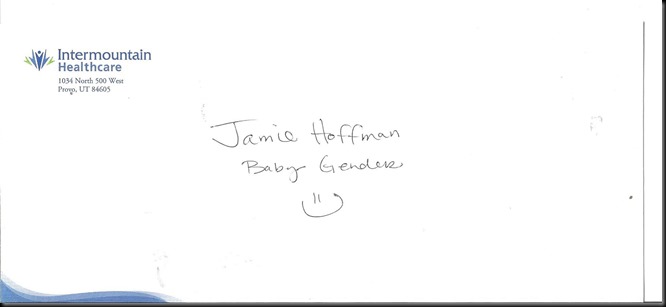 Intermountain
Healthcare
1034 North 500 West
Provo, UT 84605
Jamie Hoffman
Baby Gender